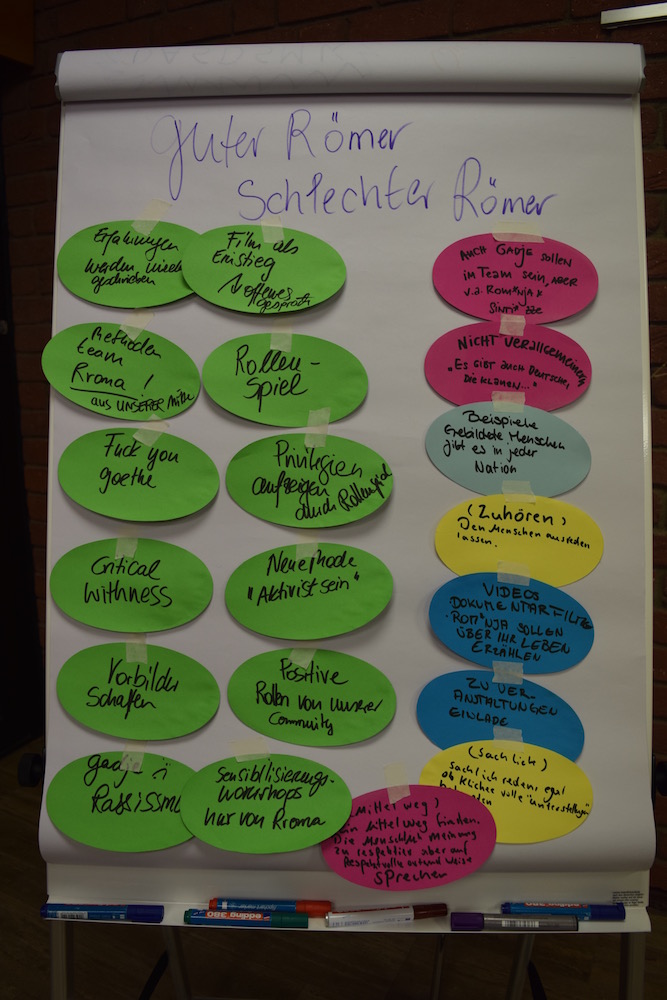 guter Römer
Schlechter Römer
Erfahrungen
werden
geschrieben
Film als
Einstieg
offenes
gespräch
Methoden
team
Rroma!
aus UNSERER Mitte
Rollen-
Spiel
Fuck you
goethe
Privilegien
aufzeigen
durch Rollenspiel
Critical
Withness
Neue mode
"Aktivist sein"
Vorbilder
Schaffen
Positive
Rollen von unserer
Community
gadje
Rassismu
Sensibilisierungs-
workshops
nur von Rroma
AUCH GADJE sollen
im Team sein, ABER
v.a. Rom*nja &
Sinti*zze
NICHT VERALLGEMEINERN
"ES GIBT AUCH DEUTSCHE,
DIE KLAUEN..."
Beispiele
Gebildete Menschen
gibt es in jeder
Nation
(Zuhören)
Den Menschen ausreden
lassen.
VIDEOS
DOKUMENTARFILME
ROM*NJA SOLLEN
ÜBER IHR LEBEN
ERZÄHLEN
ZU VER-
ANSTALTUNGEN
EINLADE
(Sachlich)
Sachlich reden, egal
ob Klichee volle "unterstellungen"
(Mittelweg)
Mittelweg finden.
Die Menschlich Meinung
zu respektier aber auf
Respektvolle art und Weise
sprechen
edding 380
edding 380